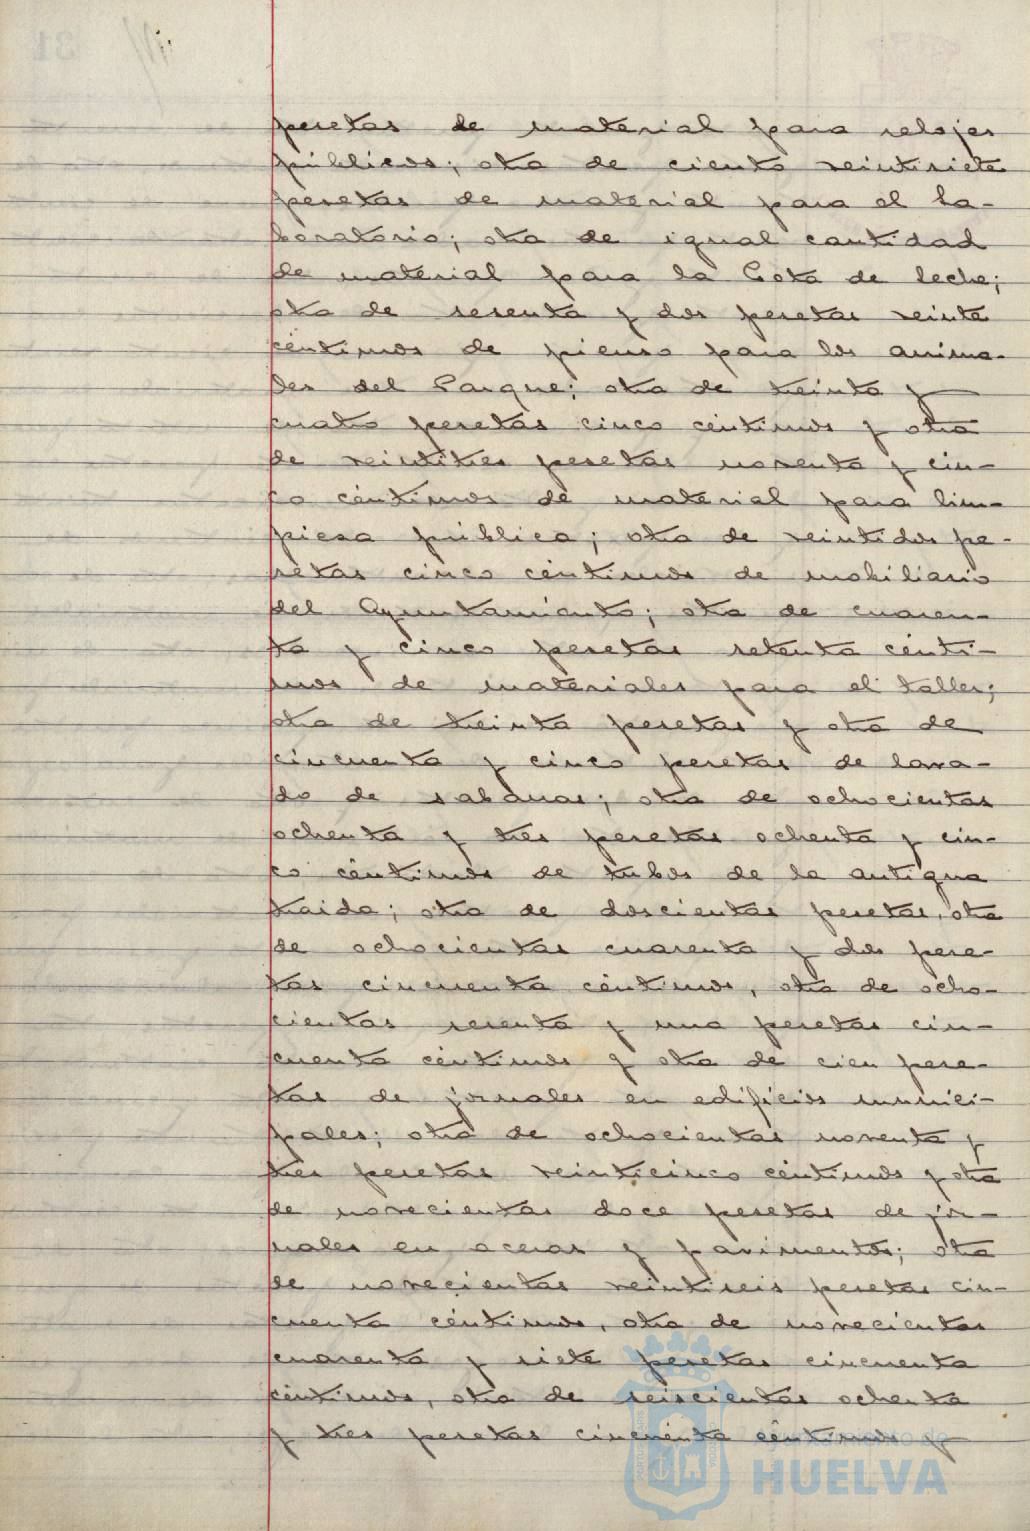 pesetas de material para relojes
públicos; otra de ciento veintisiete
pesetas de material para el la-
boratorio; otra de igual cantidad
de material para la Gota de leche;
otra de sesenta y dos pesetas veinte
céntimos de pienso para los anima-
les del Parque; otra de treinta y
cuatro pesetas cinco céntimos y otra
de veintitres pesetas noventa y cin-
co céntimos de material para lim-
pieza pública; otra de veintidos pe-
setas cinco céntimos de mobiliario
del Ayuntamiento; otra de cuaren-
ta y cinco pesetas setenta cénti-
mos de materiales para el taller;
otra de treinta pesetas y otra de
cincuenta y cinco pesetas de lava-
do de sabanas; otra de ochocientas
ochenta y tres pesetas ochenta y cin-
co céntimos de tubos de la antigua
traida; otra de doscientas pesetas, otra
de ochocientas cuarenta y dos pese-
tas cincuenta céntimos, otra de ocho-
cientas sesenta y una pesetas cin-
cuenta céntimos y otra de cien pese-
tas de jornales en edificios munici-
pales; otra de ochocientas noventa y
tres pesetas veinticinco céntimos y otra
de novecientas doce pesetas de jor-
nales en aceras y pavimentos; otra
de novecientas veintiseis pesetas cin-
cuenta céntimos, otra de novecientas
cuarenta y siete pesetas cincuenta
céntimos, otra de seiscientas ochenta
y tres pesetas cincuenta céntimos y
Ayuntamiento de
HUELVA